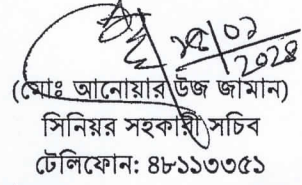 ২৫/০১
২০২৪
(মোঃ আনোয়ার উজ জামান)
সিনিয়র সহকারী সচিব
টেলিফোন: ৪৮১১৩৩৫১